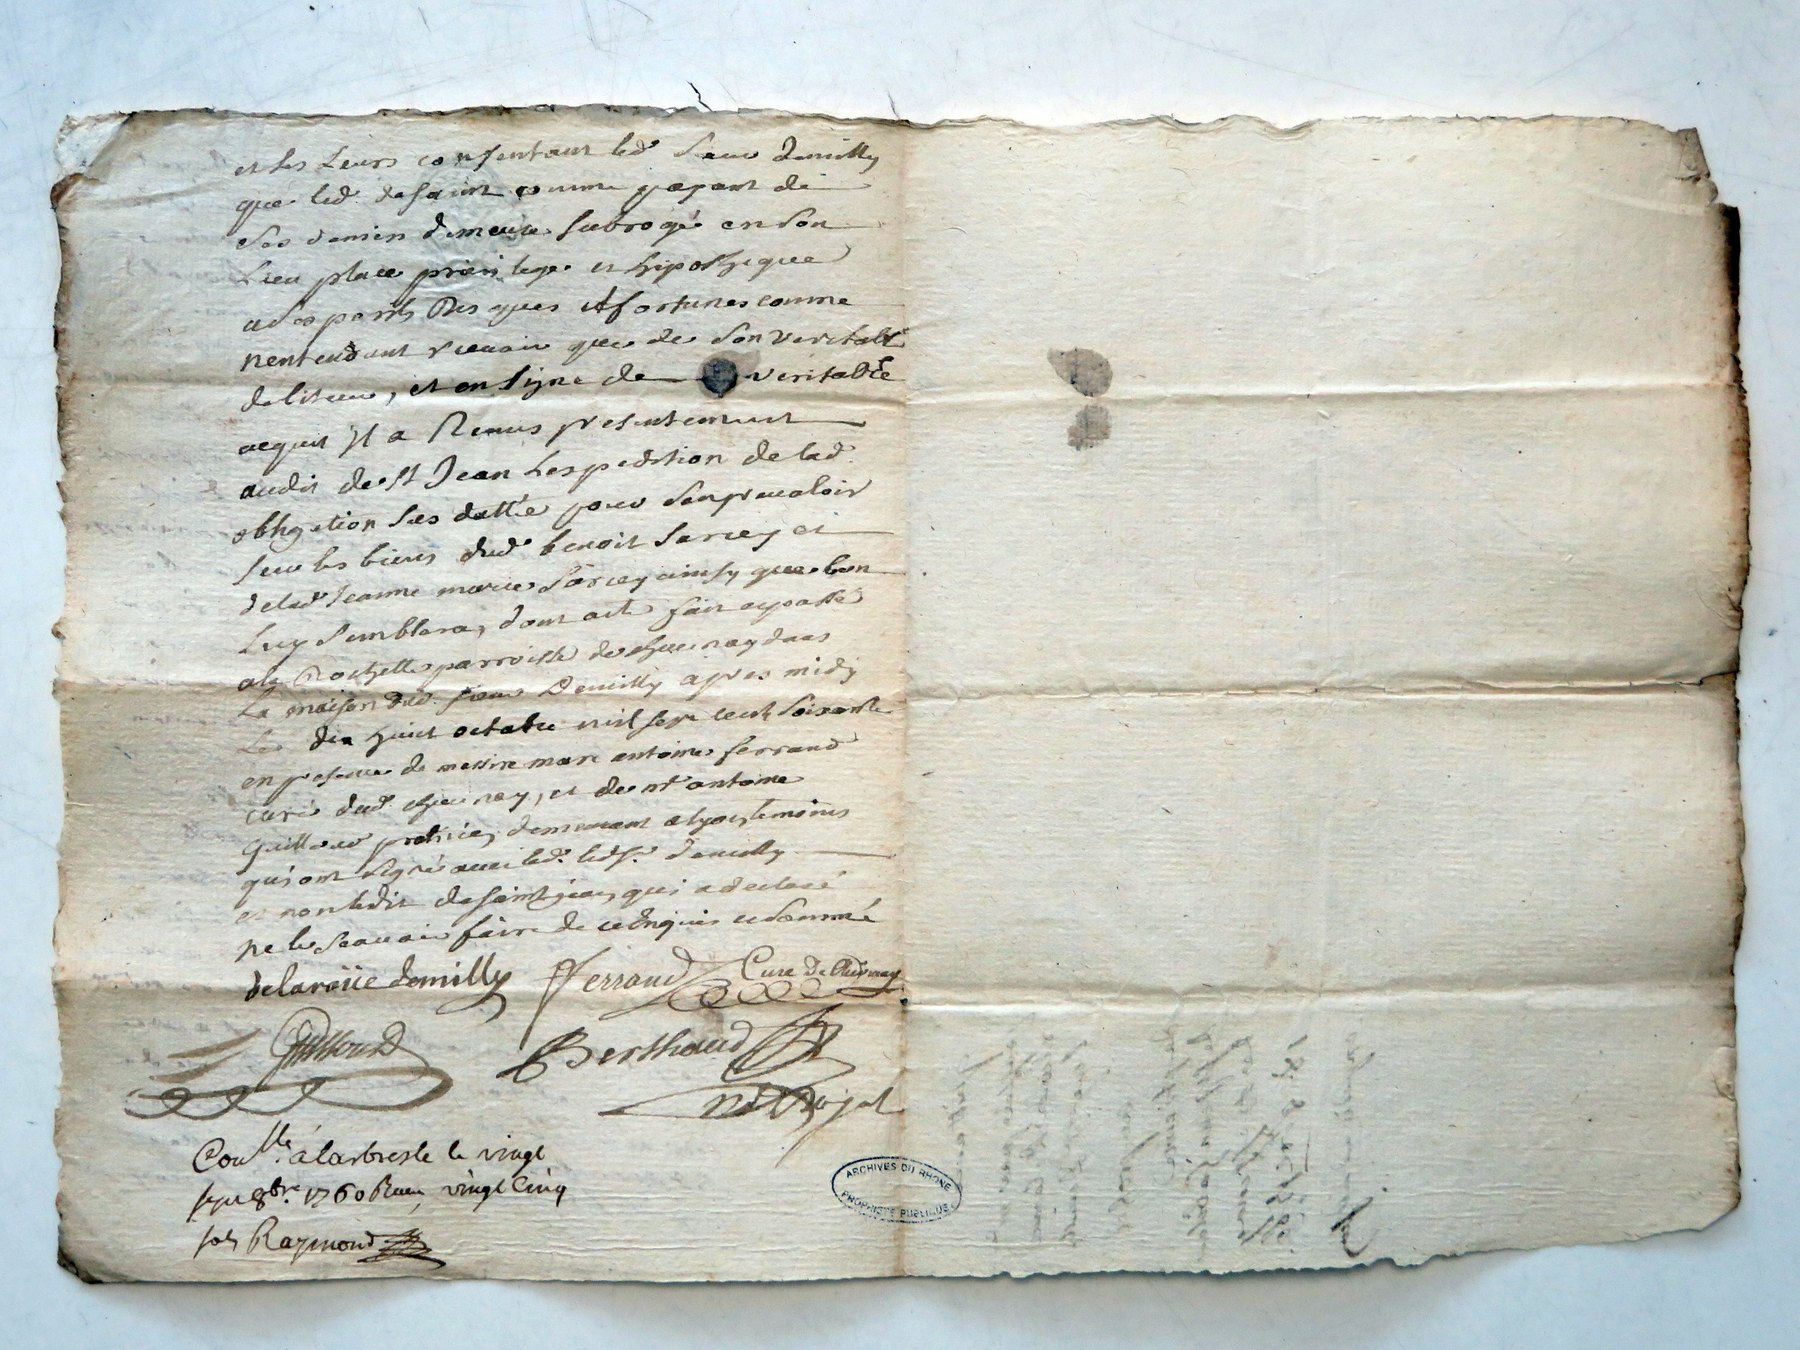 et les Leurs consentant led. sieur demilly
que led. de saint comme payant de
ses deniers demeure subrogé en son
Lieu place privilege et hipotheque
a ses perils Risques et fortunes comme
nentendant recevoir que de son veritable
debiteur, et en signe de veritable
acquit Il a Remis presentement
audit de St Jean Lexpedition de lad.
obligation sus datté pour sen prevaloir
sur les biens dud. benoit sarcey et
delad. Jeanne marie sarcey ainsy que bon
Luy semblera, dont acte fait et passé
a la Rochette parroisse de chevnay dans
La maison dud. sieur Demilly apres midy
Le dix huit octobre mil sept cent soixante
en presence de messire marc antoine ferrand
curé dud. chevnay, et de mt. antoine
Guilloud praticien demeurant a lyon, temoins
qui ont signé avec led. sr. demilly
et non ledit de saint jean, qui a declaré
ne le scavoir faire de ce Enquis et sommé
delaroüe demilly ferrand Curé de Chevnay
Guilloud Berthaud
nore Royal
Conllé a larbresle le vingt
sept 8bre. 1760 Recu vingt Cinq
sols Raymond
ARCHIVES DU RHONE
PROPRIETE PUBLIQUE